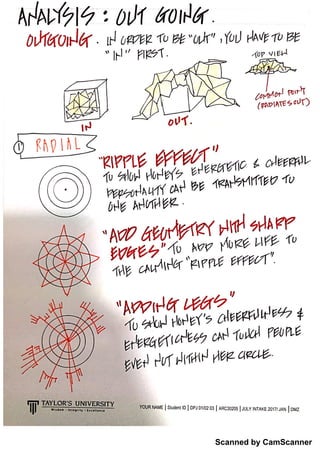 ANALYSIS : OUT GOING.
OUTGOING. IN ORDER TO BE "OUT", YOU HAVE TO BE
"IN" FIRST.
TOP VIEW
COMMON POINT
(RADIATES OUT)
IN
OUT.
1 RADIAL
"RIPPLE EFFECT"
TO SHOW HONEY'S ENERGETIC & CHEERFUL
PERSONALITY CAN BE TRANSMITTED TO
ONE ANOTHER.
"ADD GEOMETRY WITH SHARP
EDGES" TO ADD MORE LIFE TO
THE CALMING "RIPPLE EFFECT".
"ADDING LEGS"
TO SHOW HONEY'S CHEERFULNESS &
ENERGETICNESS CAN TOUCH PEOPLE
EVEN NOT WITHIN HER CIRCLE.
TAYLOR'S UNIVERSITY
Wisdom · Integrity · Excellence
YOUR NAME | Student ID | DPJ 01/02 03 | ARC30205 | JULY INTAKE 2017/ JAN | DMZ
Scanned by CamScanner